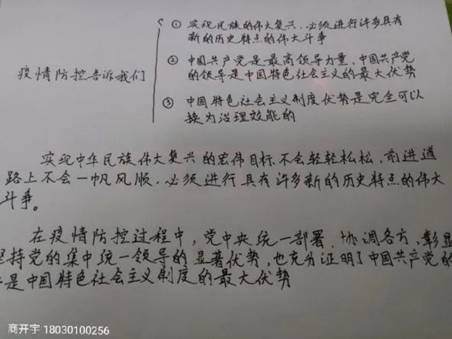 疫情防控告诉我们
① 实现民族的伟大复兴,必须进行许多具有
新的历史特点的伟大斗争
② 中国共产党是最高领导力量,中国共产党
的领导是中国特色社会主义的最大优势
③ 中国特色社会主义制度优势是完全可以
转为治理效能的
实现中华民族伟大复兴的宏伟目标不会轻轻松松,前进道
路上不会一帆风顺,必须进行具有许多新的历史特点的伟大
斗争。
在疫情防控过程中,党中央统一部署、协调各方,彰显
坚持党的集中统一领导的显著优势,也充分证明了中国共产党的
是中国特色社会主义制度的最大优势
商开宇 18030100256